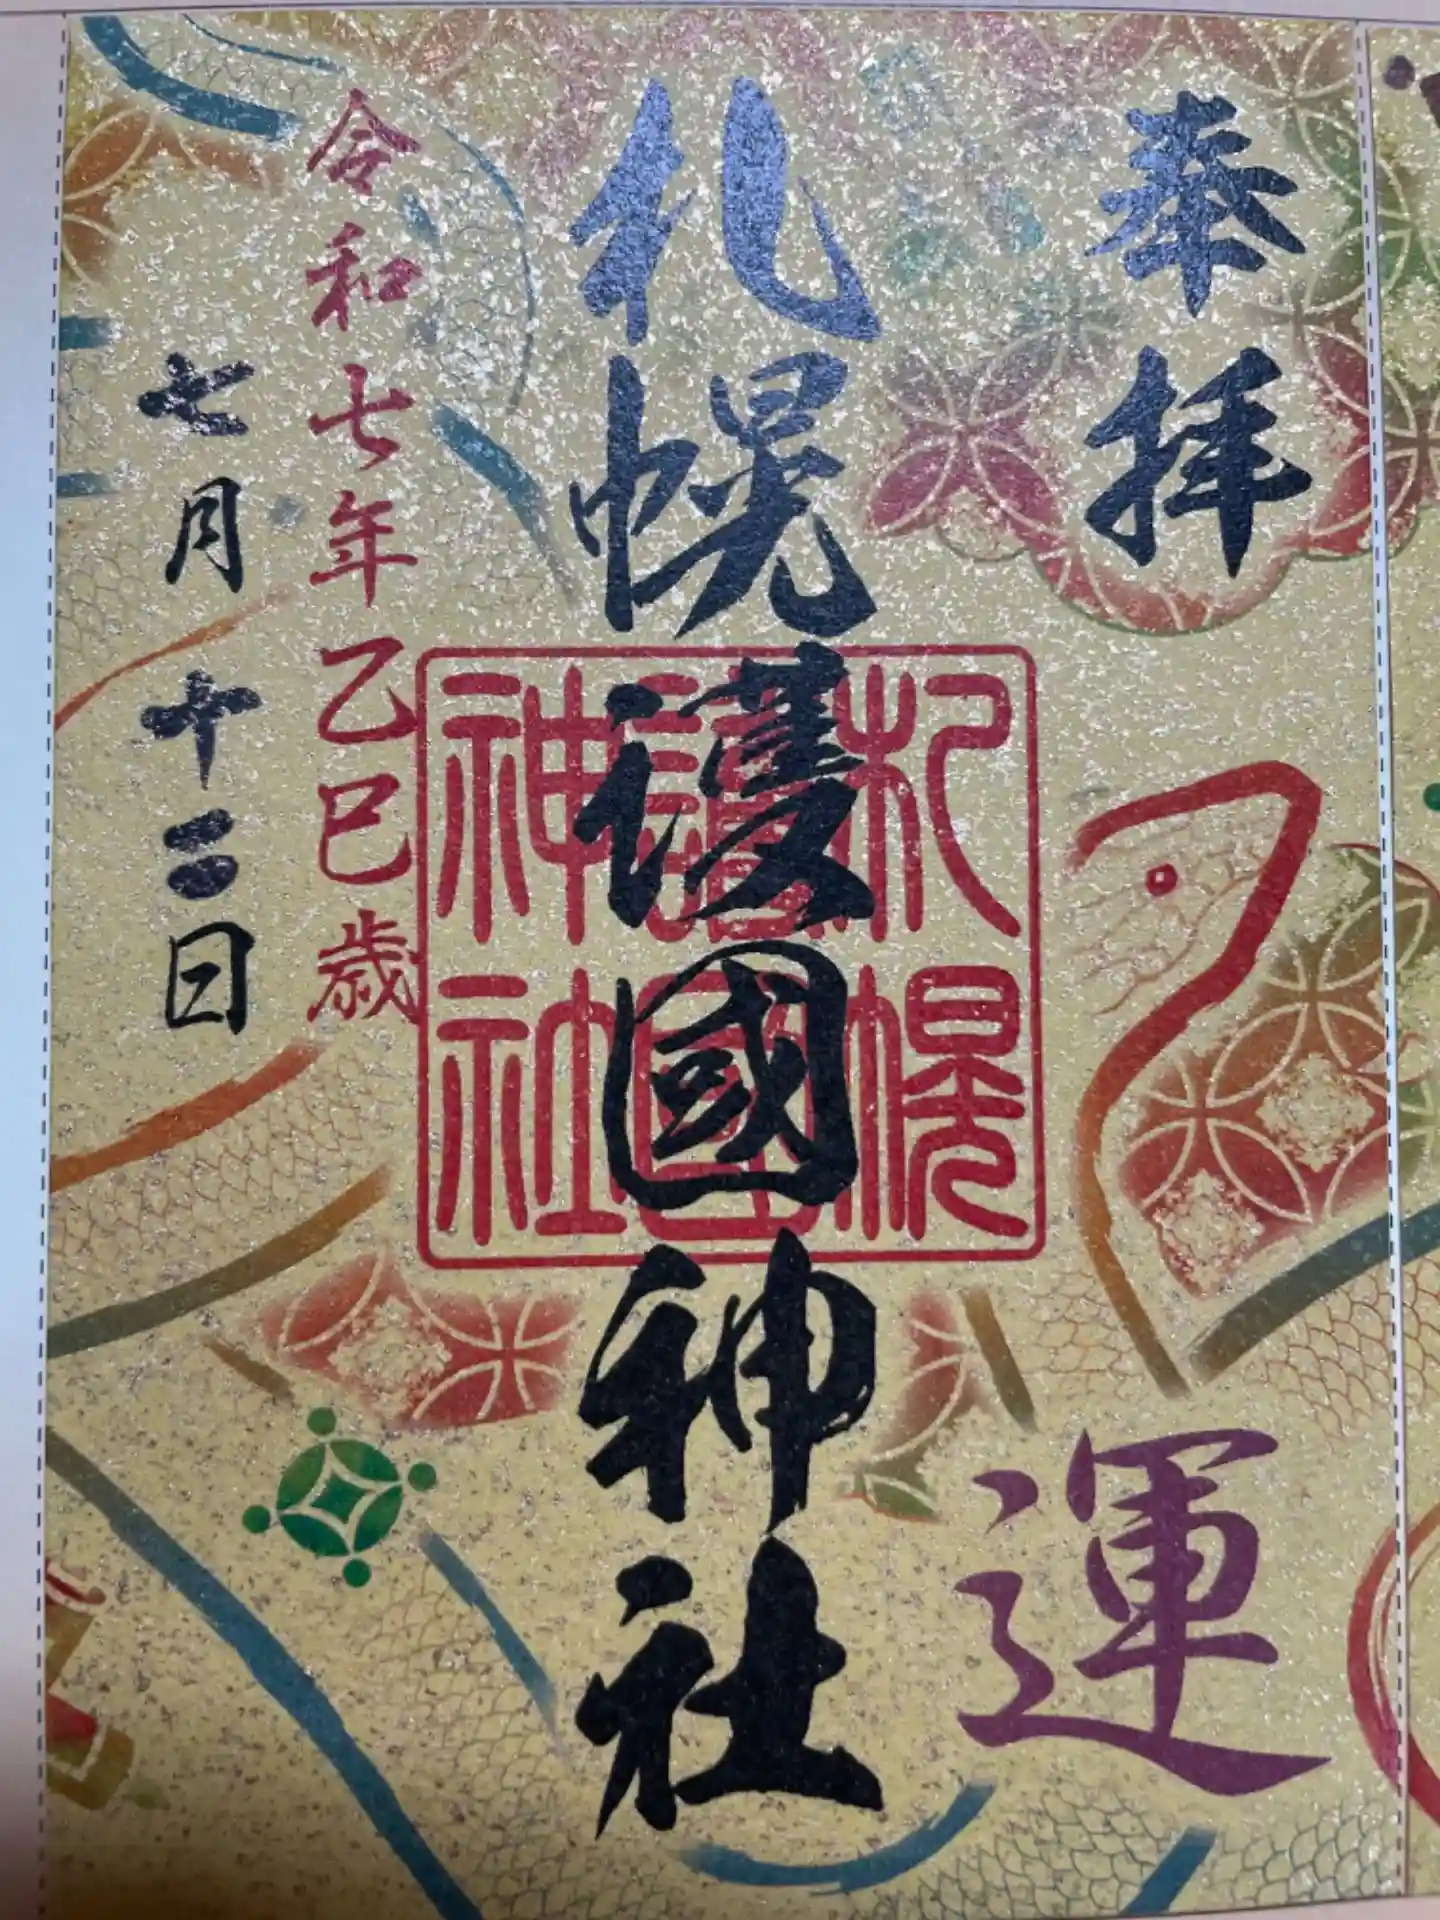 奉拝
運
札幌護國神社
札幌
護國
神社
令和七年乙巳歳
七月十二日